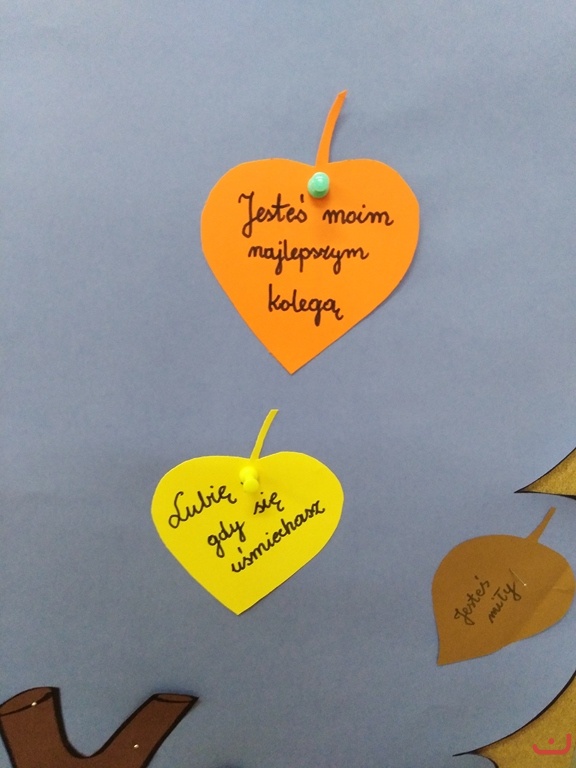 Jesteś moim
najlepszym
kolegą
Lubię
gdy się
uśmiechasz
Jesteś
miły